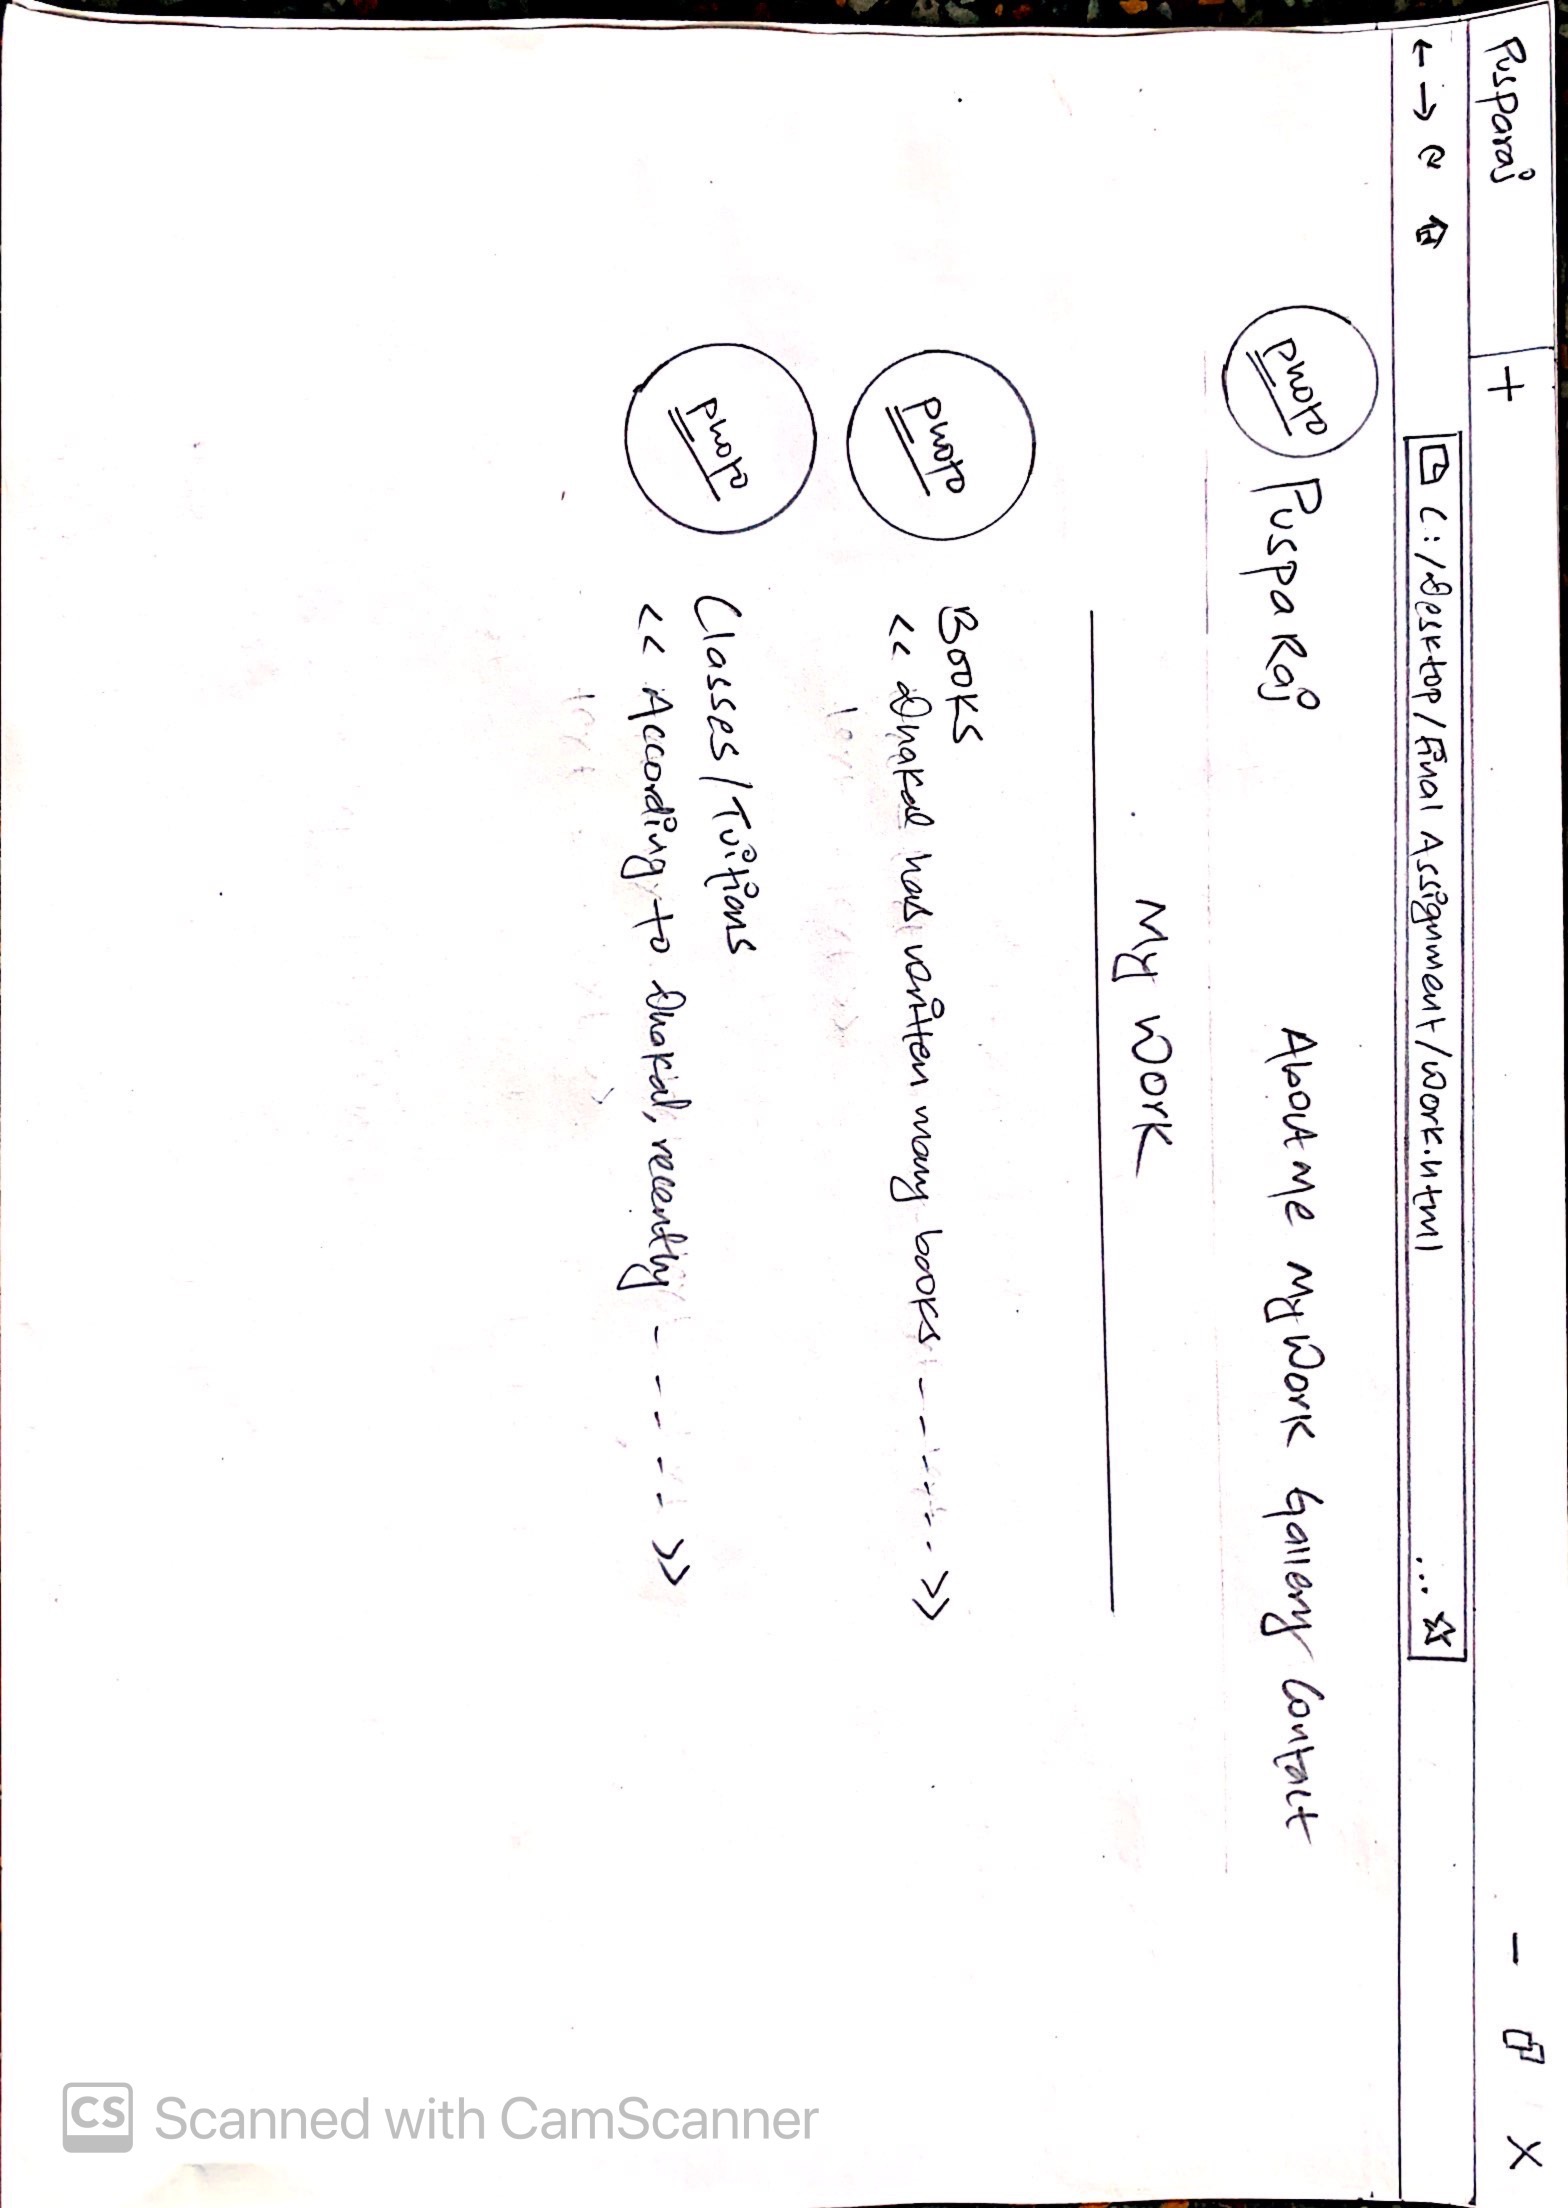 Pusparaj +
C:/Desktop/Final Assignment/Work.html ...
photo Puspa Raj About Me My Work Gallery Contact
My Work
photo
Books
<< Dhakal has written many books - - - - - >>
photo
Classes/Tuitions
<< According to Dhakal, recently - - - - - >>
CS Scanned with CamScanner